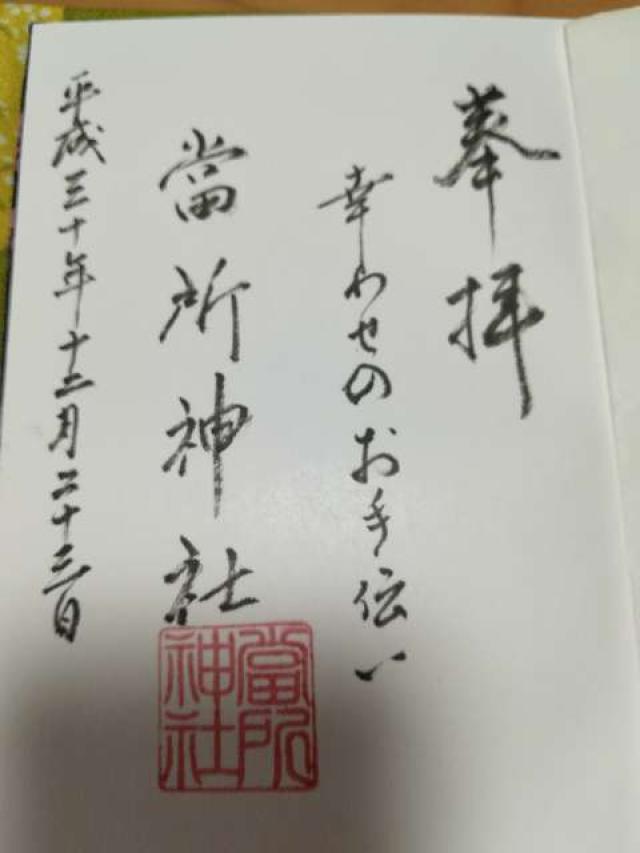 奉拝
幸わせのお手伝い
當所神社
當所
神社
平成三十年十二月二十三日